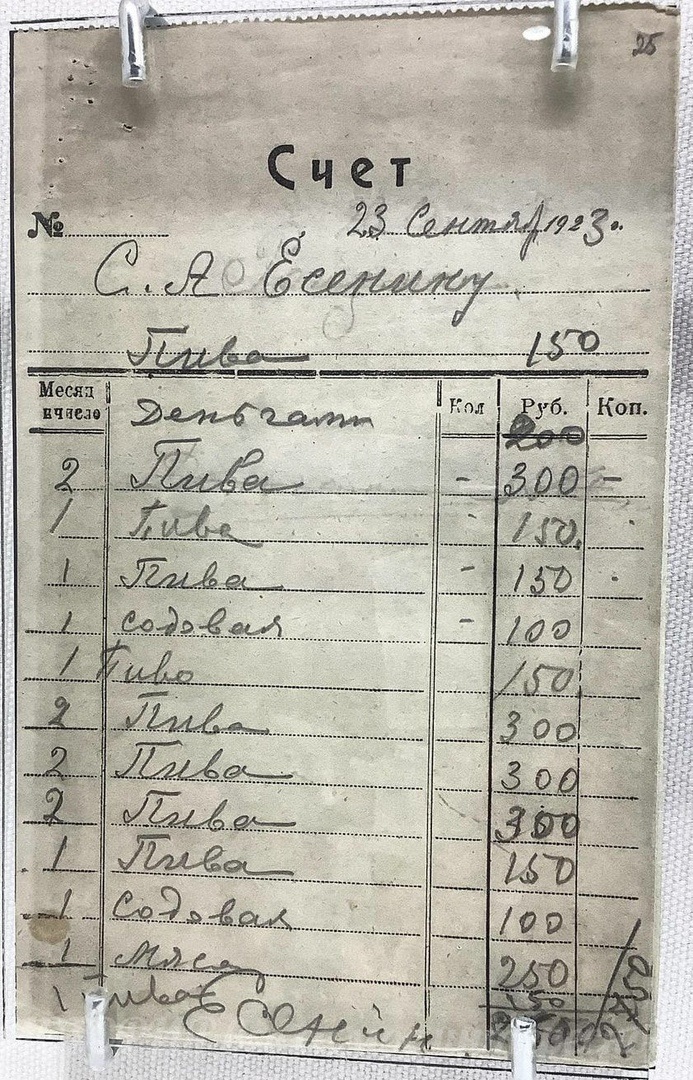 25
Счет
№ 23 Сентяб 1923 г.
С. А Есенину
Пива 150
Месяц и число Кол Руб. Коп.
Деньгами 200
2 Пива - 300 -
1 Пива - 150.
1 Пива - 150
1 содовая - 100
1 Пиво 150
2 Пива 300
2 Пива 300
2 Пива 300
1 Пива 150
1 Содовая 100
1 мясо 250
1 Пива 150
Есенин